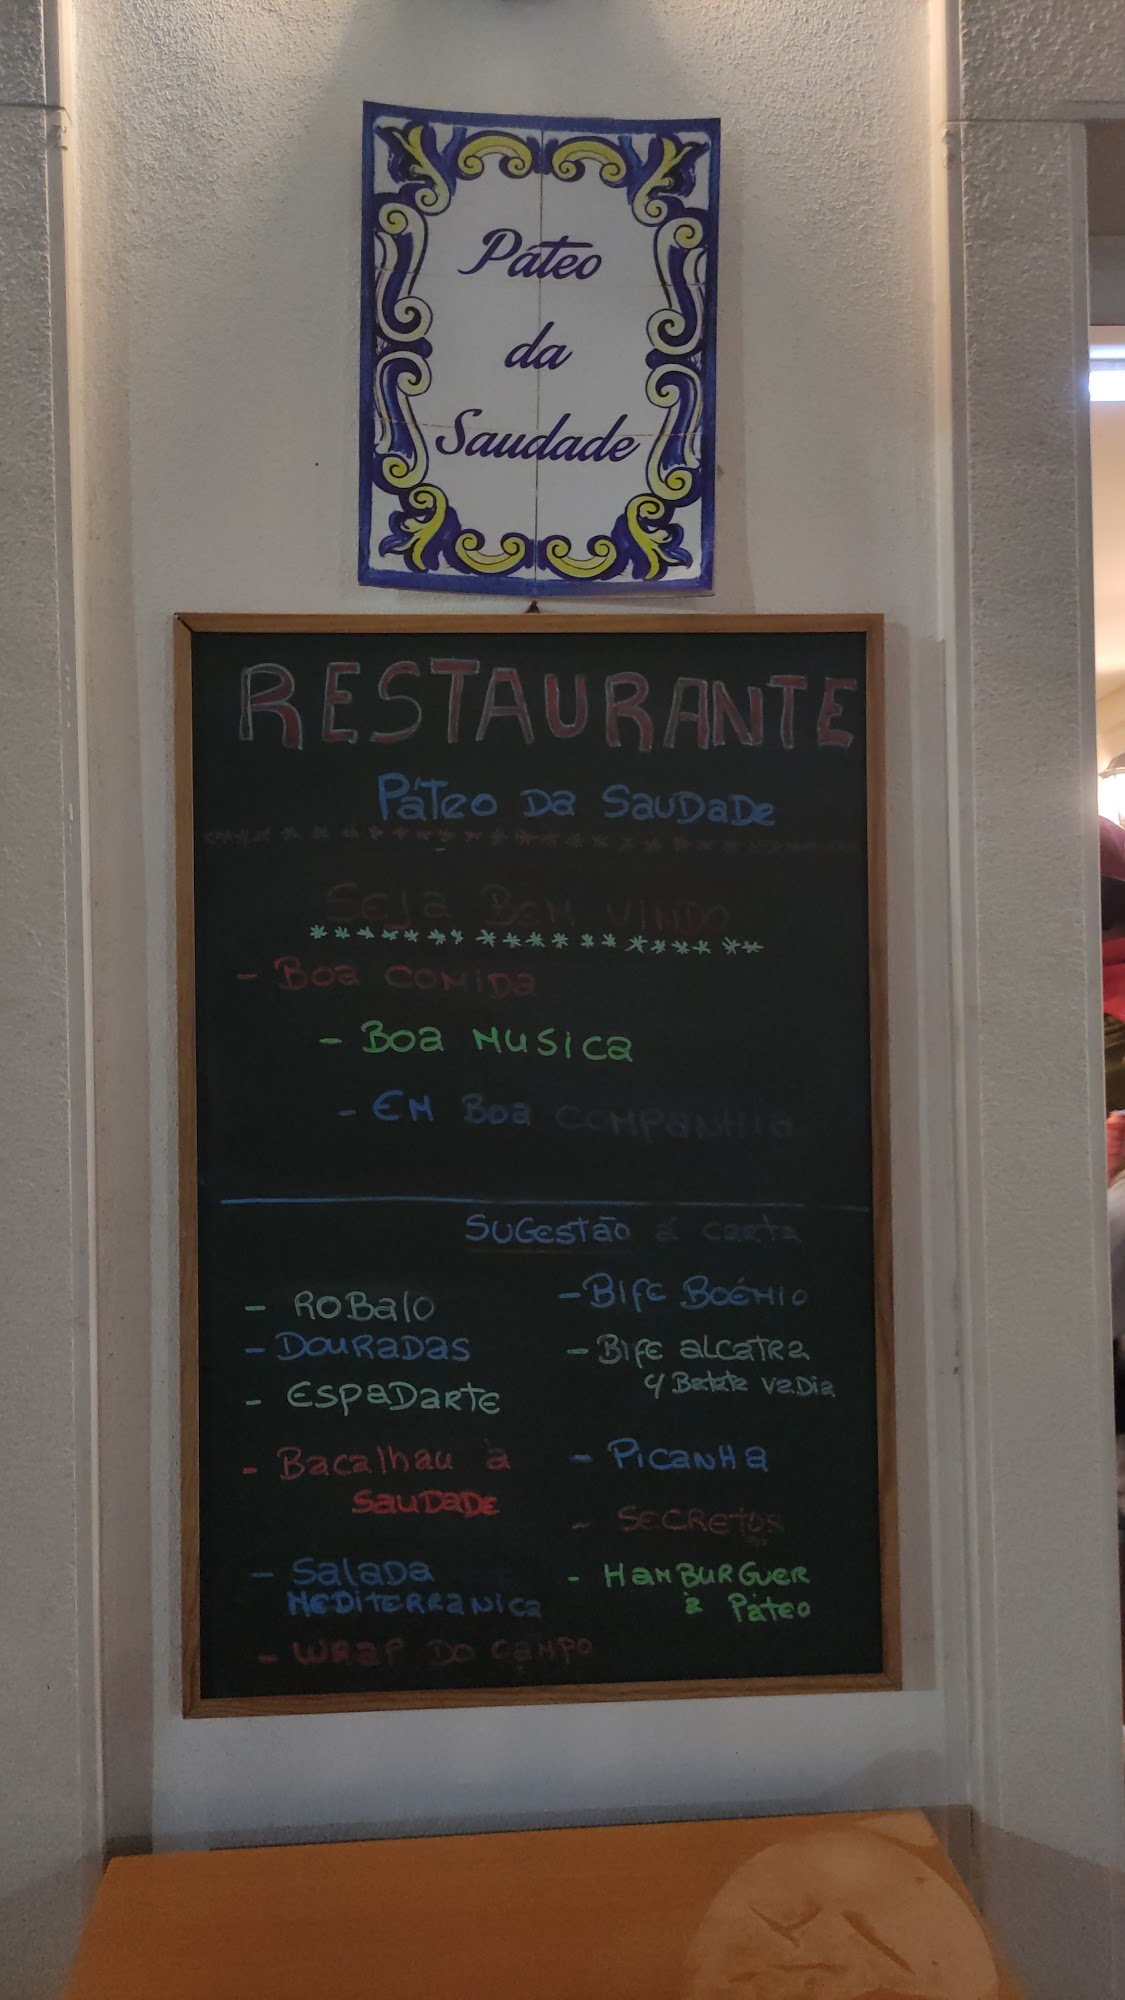 Páteo
da
Saudade
RESTAURANTE
Páteo da Saudade
Seja Bem Vindo
- Boa comida
- Boa musica
- Em Boa companhia
Sugestão á carta
- Robalo
- Douradas
- Espadarte
- Bacalhau à
Saudade
- Salada
Mediterranica
- Wrap do campo
- Bife Boémio
- Bife alcatra
c/ Batata vadia
- Picanha
- Secretos
- Hamburguer
à Páteo